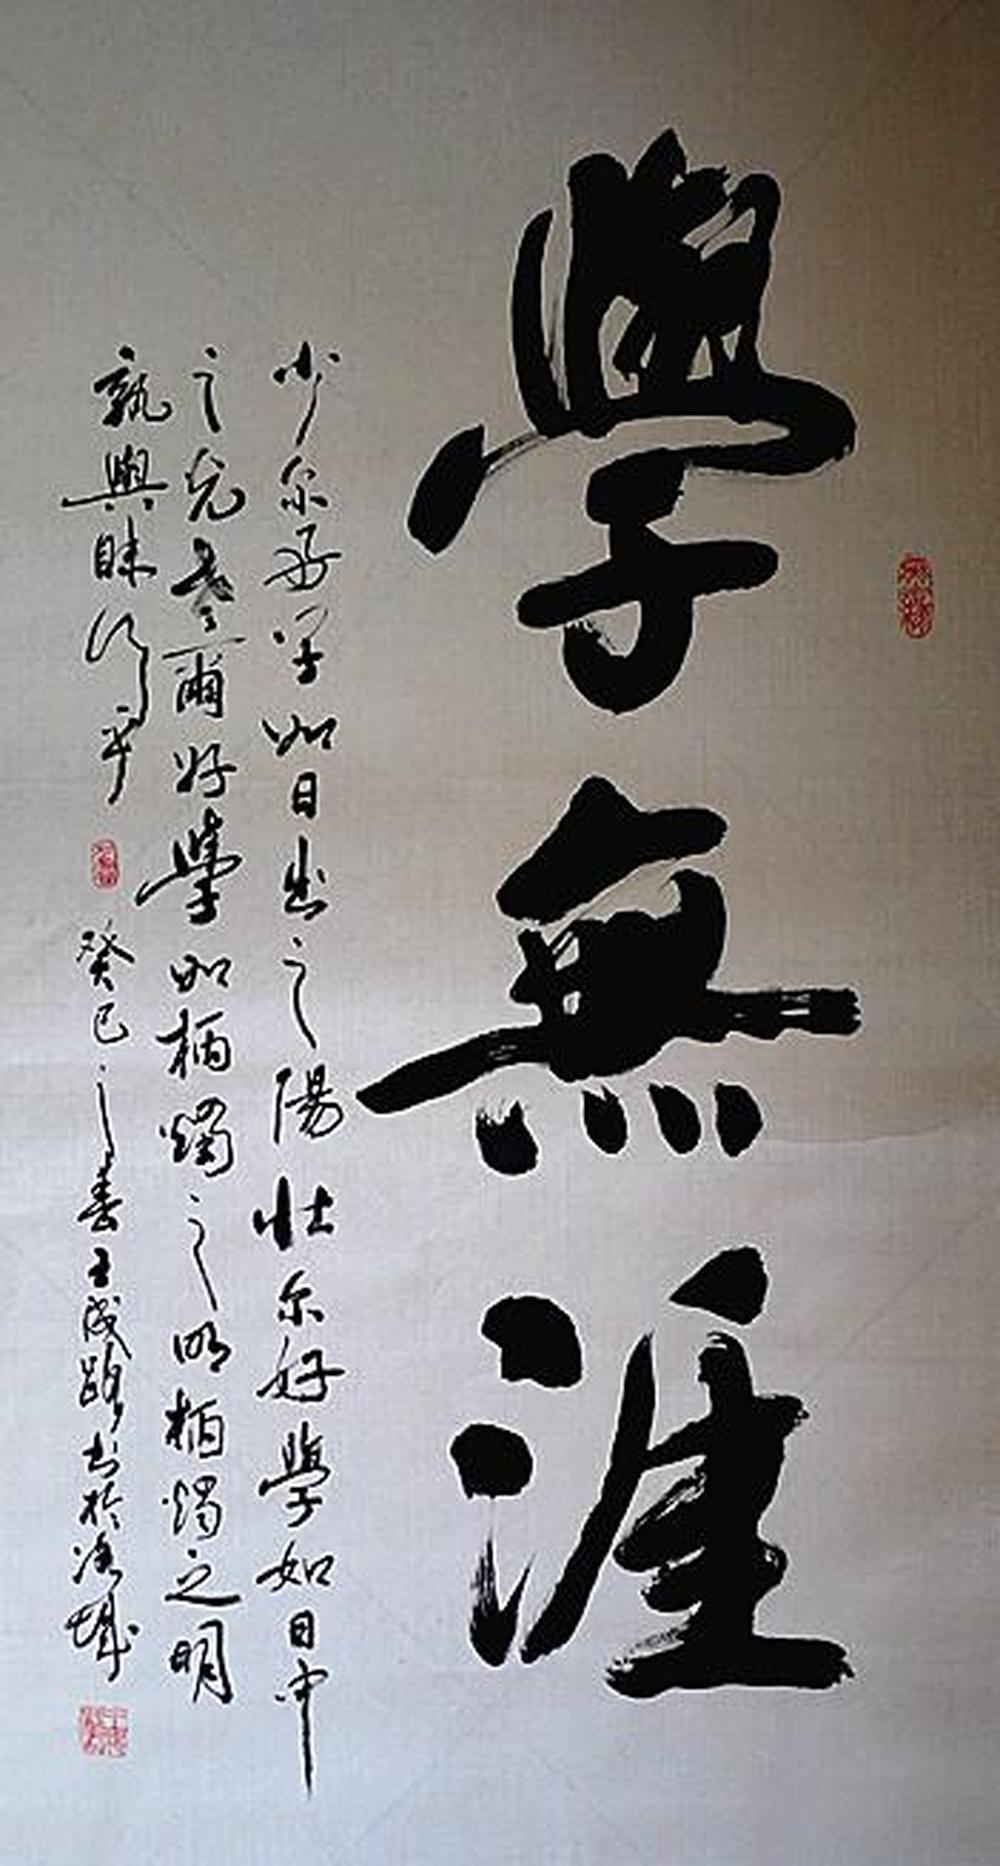 學無涯
少而好學如日出之陽壯而好學如日中
之光老爾好學如柄燭之明柄燭之明
孰與昧行乎
癸巳之春王成 书於 城